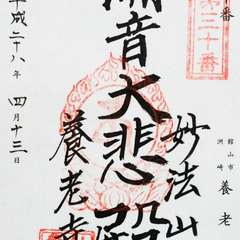 十番
第三十番
妙法山
潮音大悲殿
養老寺
館山市
洲崎 養老
平成二十八年 四月十三日